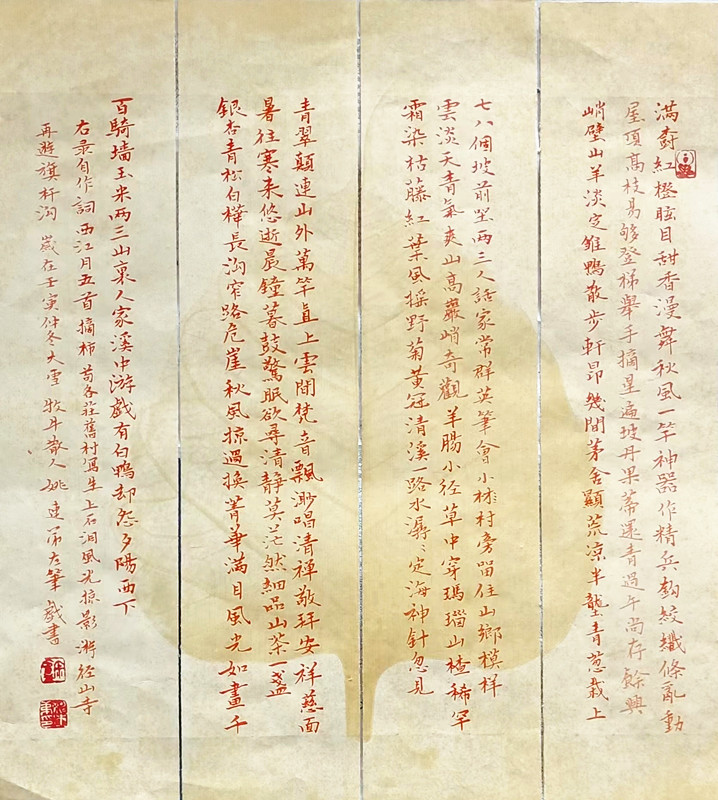 滿樹紅橙眩目甜香漫舞秋風一竿神器作精兵鈎絞纖條亂動
屋頂高枝易夠登梯舉手摘星遍坡丹果蒂還青過午尚存餘興
峭壁山羊淡定雛鴨散步軒昂幾間茅舍顯荒凉半壟青葱栽上
七八個坡前坐兩三人話家常群英筆會小村旁留住山鄉模樣
雲淡天青氣爽山高巖峭奇觀羊腸小徑草中穿瑪瑙山楂稀罕
霜染枯藤紅葉風搖野菊黃冠清溪一路水潺〻定海神針忽見
青翠顛連山外萬竿直上雲間梵音飄渺唱清禪敬拜安祥慈面
暑往寒來悠逝晨鐘暮鼓驚眠欲尋清靜莫茫然細品山茶一盞
銀杏青松白樺長溝窄路危崖秋風掠過換菁華滿目風光如畫千
百騎墙玉米兩三山裏人家溪中游戲有白鴨却怨夕陽西下
右录自作詞西江月五首摘柿苟各莊舊村寫生上石洞風光掠影游徑山寺
再遊旗杆溝 歲在壬寅仲冬大雪 牧牛散人姚連第左筆戲書